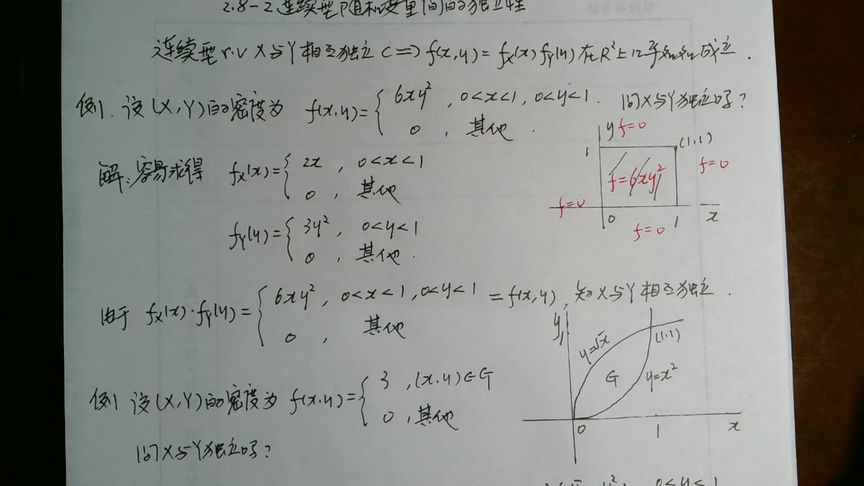 2.8-2 连续型随机变量间的独立性
连续型 r.v X与Y相互独立 <=> f(x,y) = fX(x) fY(y) 在R²上几乎处处成立.
例1. 设 (X,Y)的密度为 f(x,y) = { 6xy², 0<x<1, 0<y<1. 问X与Y独立吗?
0, 其他.
解: 容易求得 fX(x) = { 2x, 0<x<1
0, 其他
fY(y) = { 3y², 0<y<1
0, 其他.
y f=0
1 (1.1)
f=0
f=6xy²
f=0
0 1 x
f=0
由于 fX(x)·fY(y) = { 6xy², 0<x<1, 0<y<1 = f(x,y), 知X与Y相互独立.
0, 其他
例1 设(X,Y)的密度为 f(x,y) = { 3, (x,y)∈G
0, 其他
问X与Y独立吗?
y
1
y=√x (1.1)
G y=x²
0 1 x
0<y<1